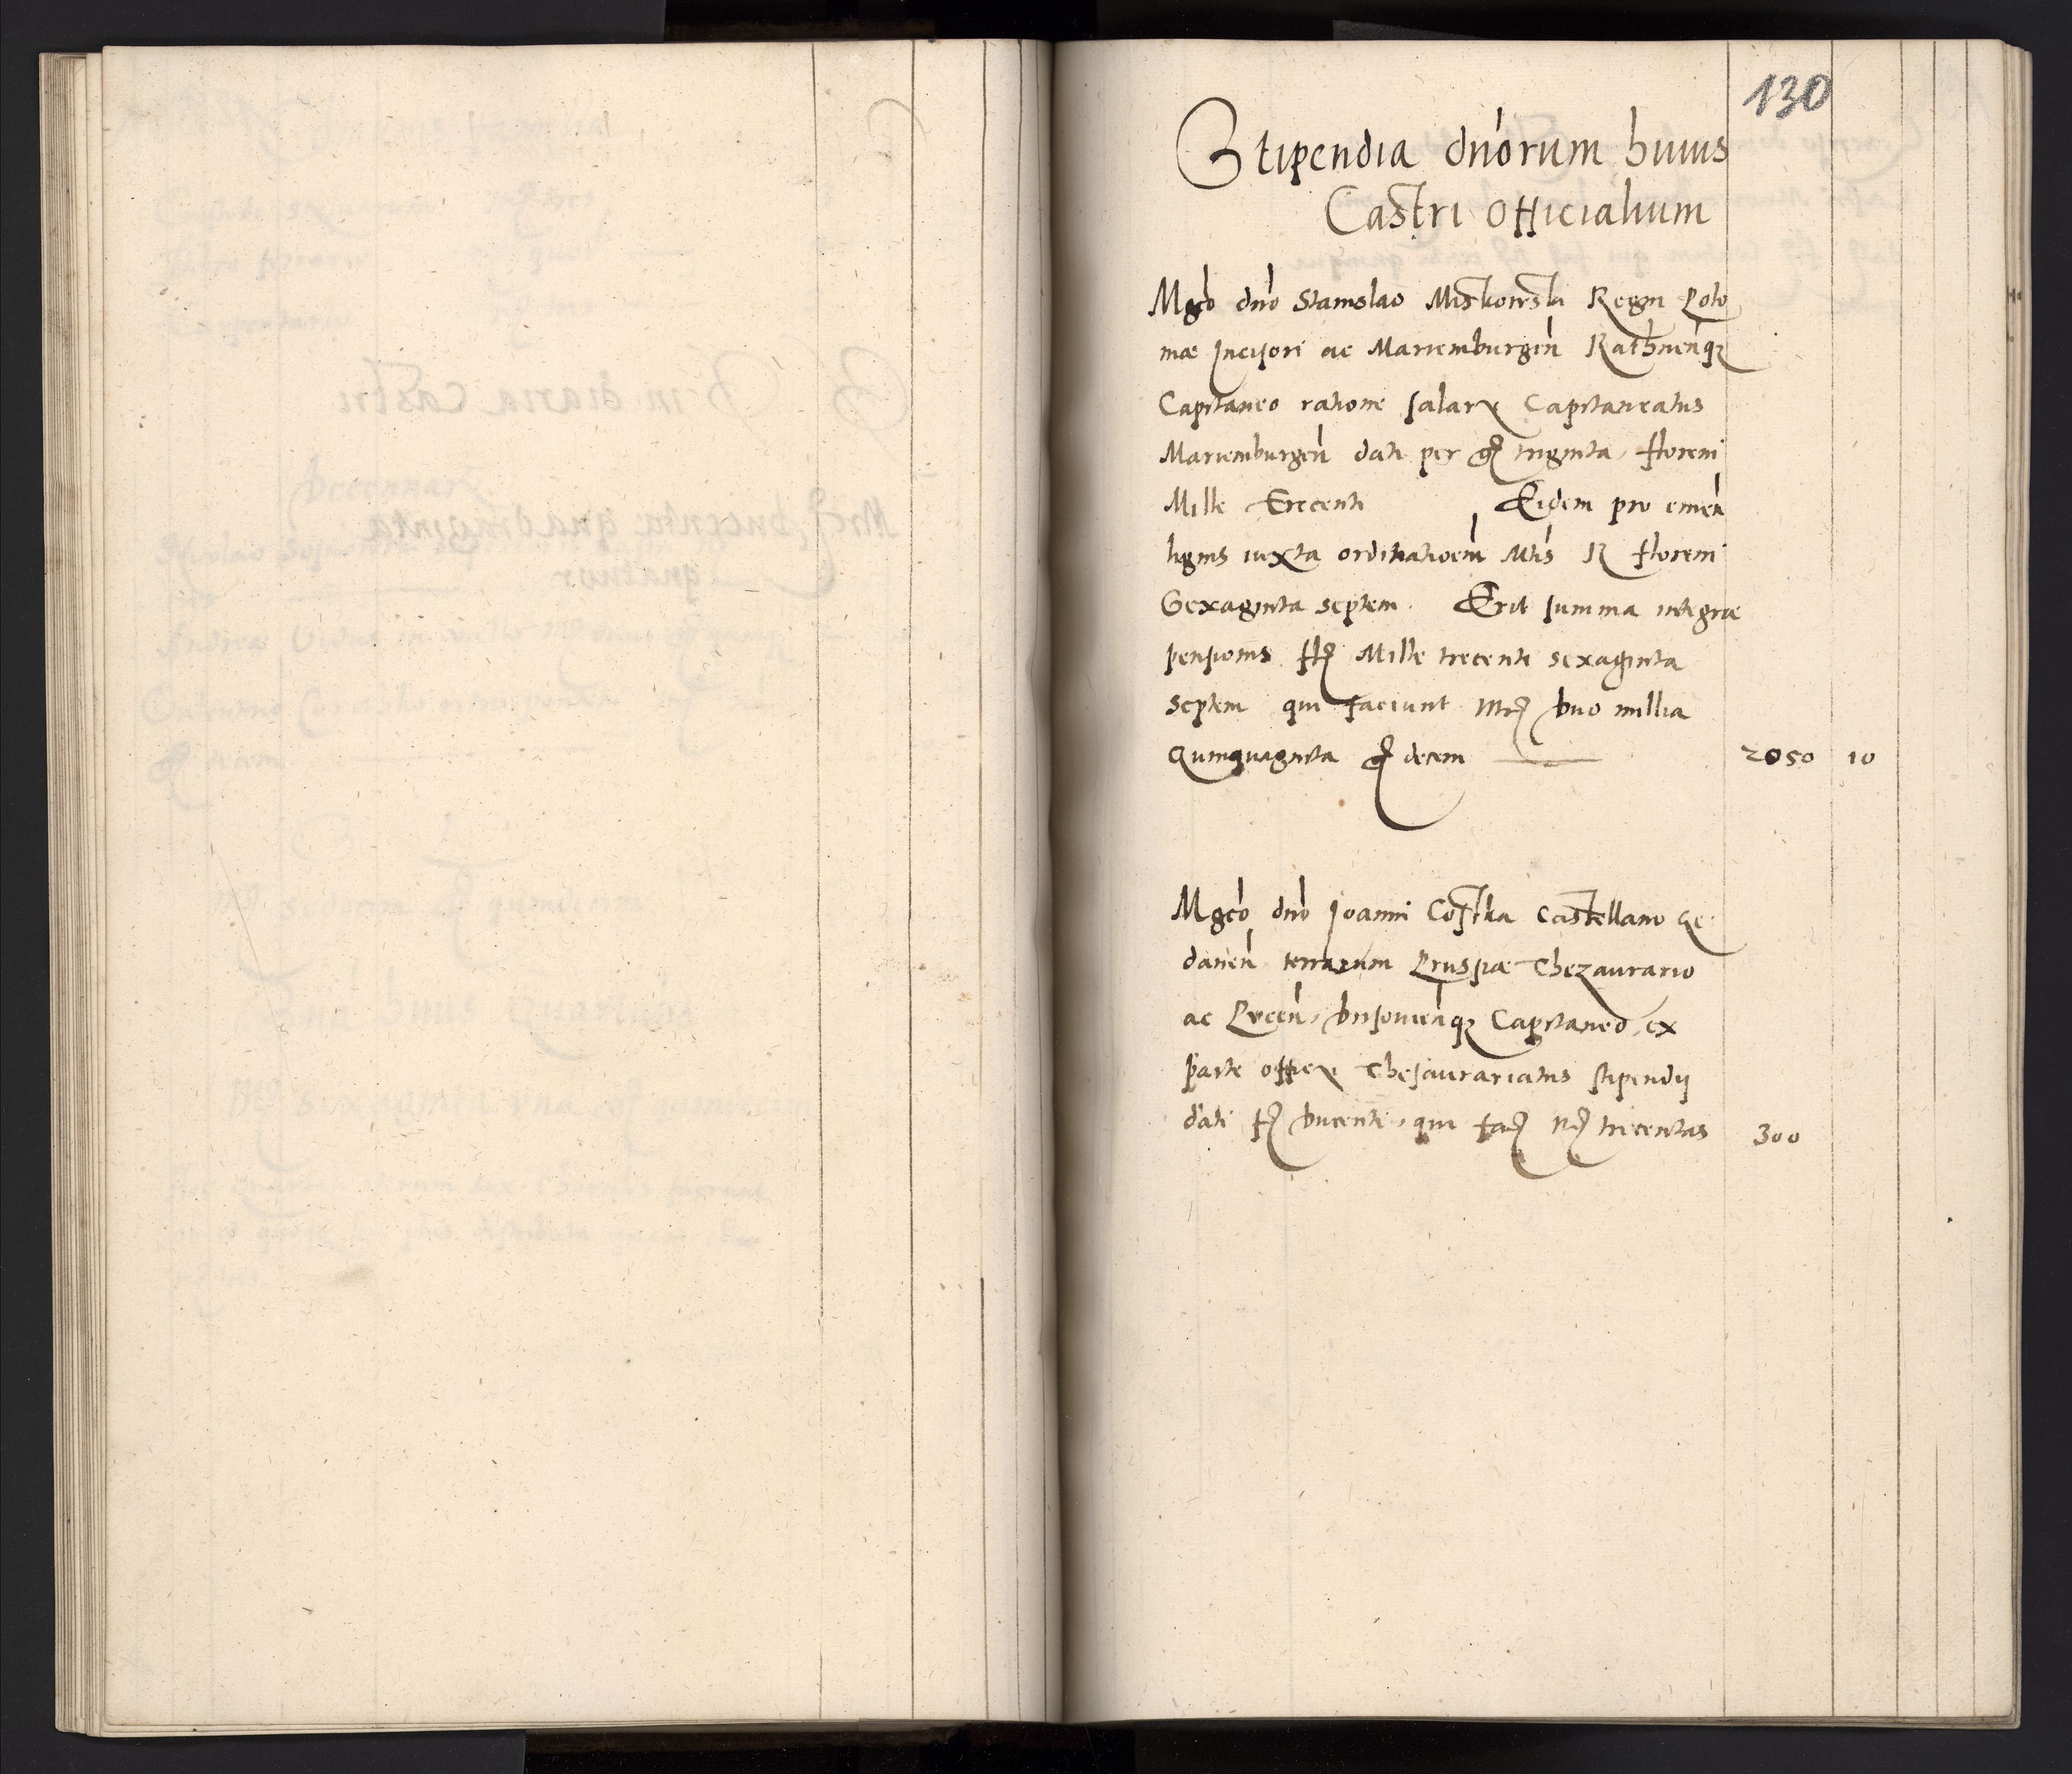 130
Stipendia dnorum huius
Castri officialium
Mgco dno Stanislao Miskowski Regni Polo
niæ Incisori ac Mariemburgen Rathnenq3
Capitaneo ratione salarii Capitaneatus
Mariemburgen dati per gr triginta, floreni
Mille Trecenti Eidem pro emen
lignis iuxta ordinationem Mtis R floreni
Sexaginta septem. Erit summa integræ
pensionis fl Mille trecenti sexaginta
septem qui faciunt mr duo millia
Quinquaginta gr decem 2050 10
Mgco dno Joanni Costka Castellano Ge
danen terrarum Prussiæ Thezaurario
ac Pucen, Capitaneo, ex
parte officii Thesaurariatus stipendij
dati fl ducenti, qui fac mr trecentas 300